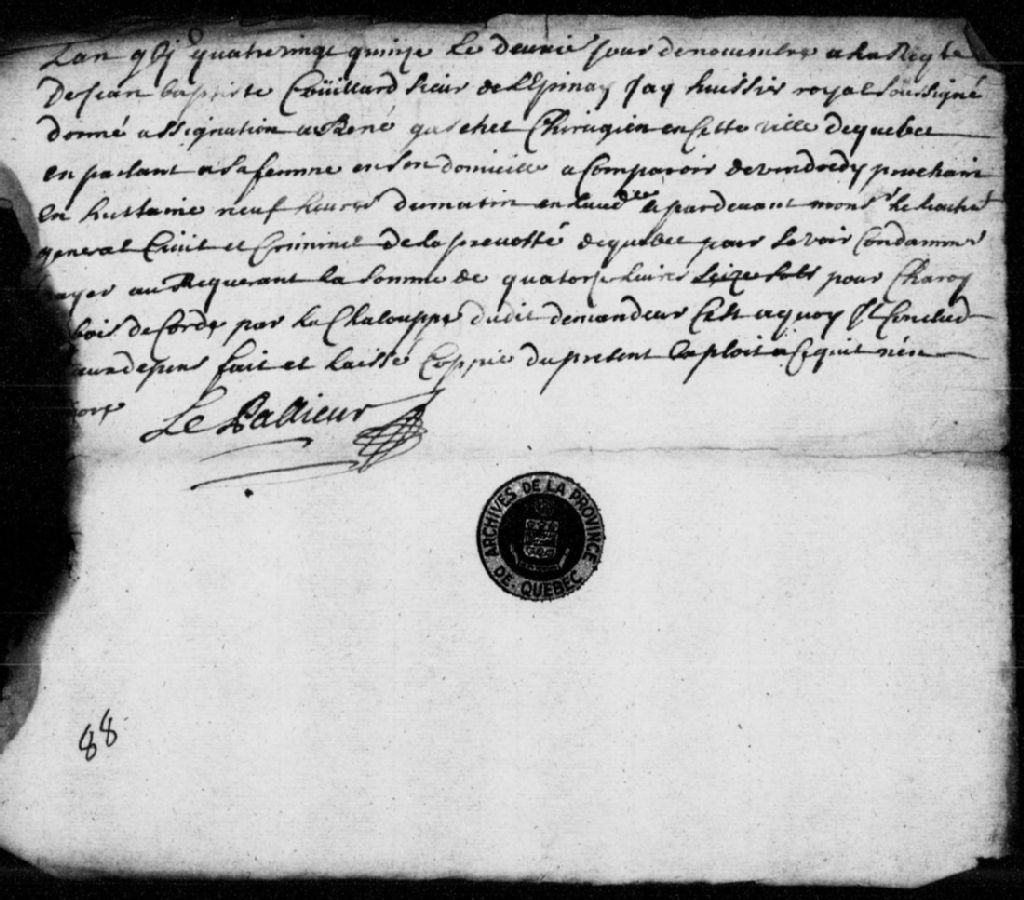 Lan gbj^c quatrevingt quinze le deuxie^ jour de novembre a la Reqte
De Jean baptiste Coüillard sieur de LEspinay Jay huissier royal soussigné
donné assignation a René gaschet Chirugien en Cette ville de quebec
en parlant a sa femme en son domicille a Comparoir de vendredy prochain
en huitaine neuf heures du matin en laud^ce a pardevant mons^r le lieuten^t
general Civil et Criminel de la prevosté de quebec pour se voir Condamner
payer au Requerant la somme de quatorze livres seize sols pour
bois de Corde par la Chalouppe dudit demandeur Cest a quoy Il Conclud
aux despens fait et laissé Coppie du present Exploit a ce quil nen
Le Pallieur
ARCHIVES DE LA PROVINCE DE QUEBEC
88